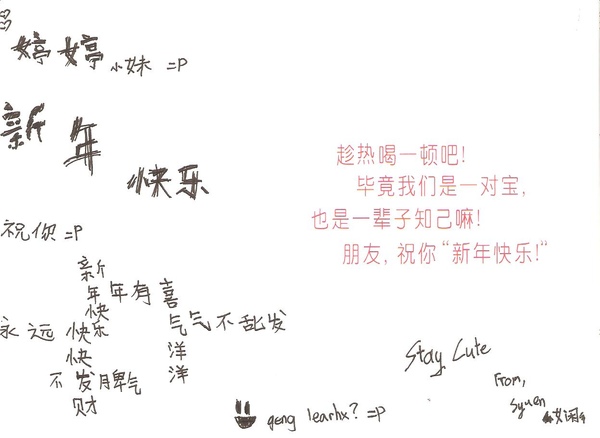 婷婷 小妹 =P
新年快乐
祝你 =P
新
年年有喜
快
气气不乱发
永远快乐
快 洋
不发脾气 洋
财
趁热喝一顿吧!
毕竟我们是一对宝,
也是一辈子知己嘛!
朋友, 祝你“新年快乐!”
Stay Cute
From,
Syuen
geng learhx? =P